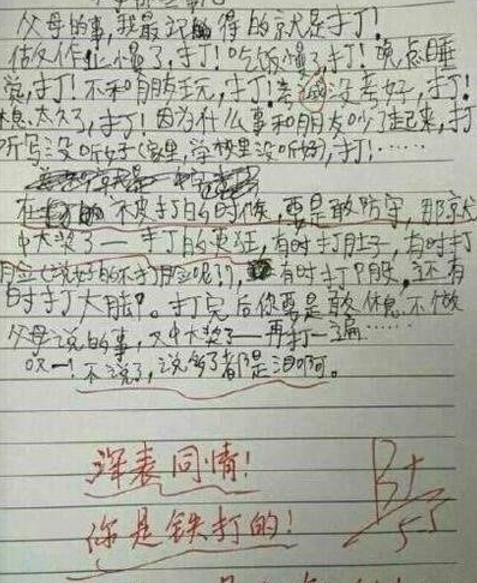 父母的事,我最记得的就是打!
做作业慢了,打!吃饭慢了,打!晚点睡
觉,打!不和朋友玩,打!考试没考好,打!
休息太久了,打!因为什么事和朋友吵了起来,打
听写没听好(家里,学校里没听好),打!……
在 被打的时候,要是敢防守,那就
中大奖了—打的更狂,有时打肚子,有时打
脸(说好的不打脸呢?!),有时打腿,还有
时打大腿。打完后你要是敢休息不做
父母说的事,又中大奖了——再打一遍……
哎—!不说了,说多了都是泪啊。
深表同情!
你是铁打的!
B+